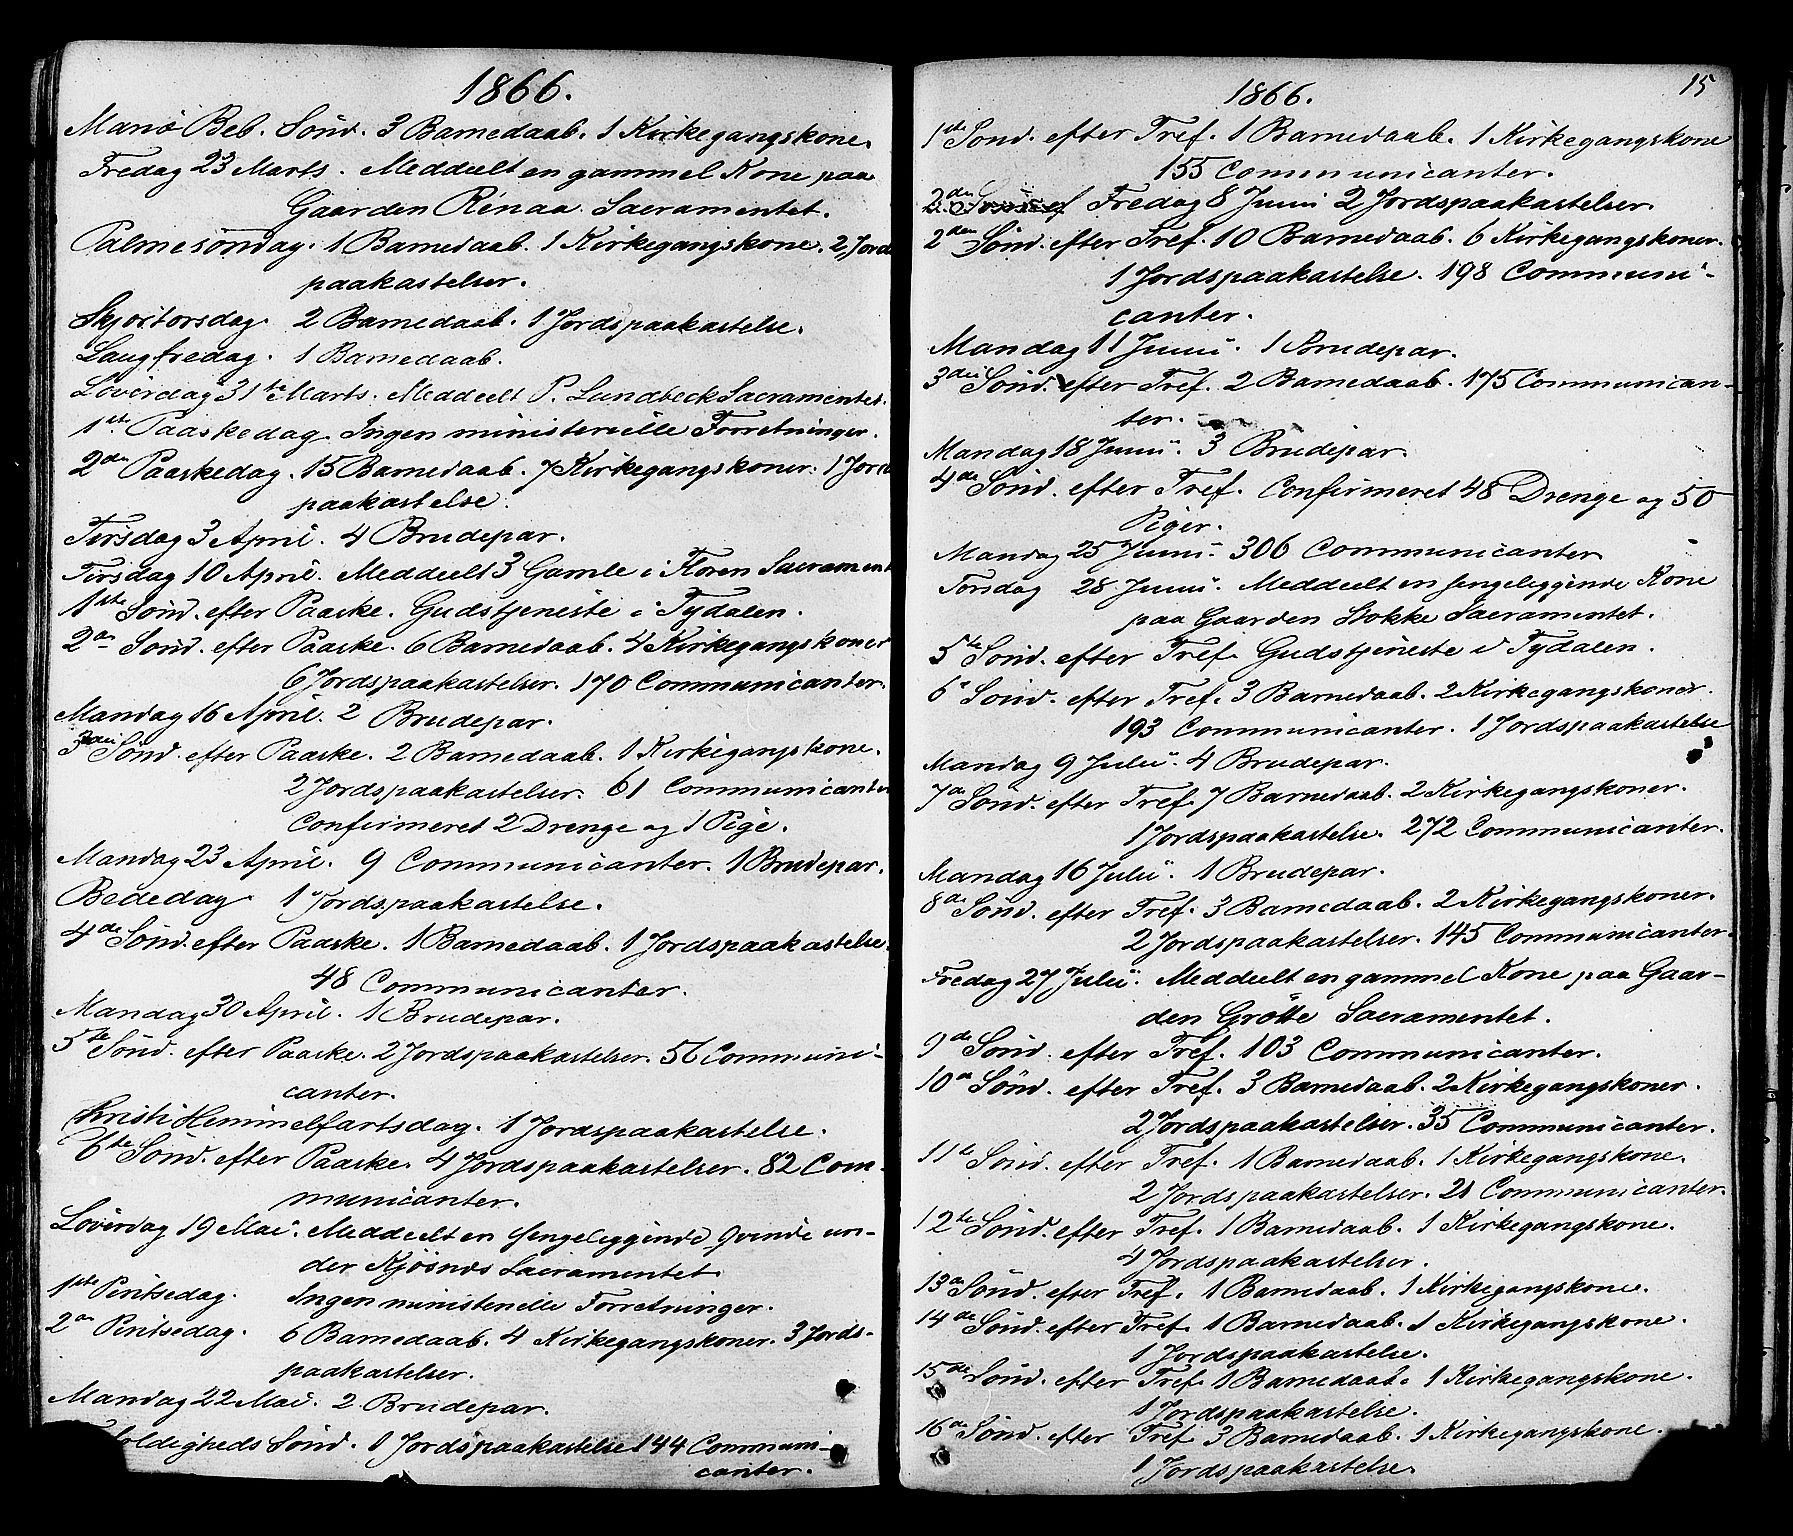 1866.
Mariæ Beb. Sönd. 3 Barnedaab. 1 Kirkegangskone.
Fredag 23 Marts. Meddeelt en gammel Kone paa
Gaarden Rénaa Sacramentet.
Palmesöndag. 1 Barnedaab. 1 Kirkegangskone. 2 Jords
paakastelser.
Skjærtorsdag. 2 Barnedaab. 1 Jordspaakastelse.
Langfredag. 1 Barnedaab.
Löverdag 31te Marts. Meddeelt P. Lundbeck Sacramentet.
1ste Paaskedag. Ingen ministerielle Forretninger.
2den Paaskedag. 15 Barnedaab. 7 Kirkegangskoner. 1 Jords
paakastelse.
Tirsdag 3 April. 4 Brudepar.
Tirsdag 10 April. Meddeelt 3 Gamle i Floren Sacrament
1ste Sönd. efter Paaske. Gudstjeneste i Tydalen.
2den Sönd. efter Paaske. 6 Barnedaab. 4 Kirkegangskoner
6 Jordspaakastelser. 170 Communicanter.
Mandag 16 April. 2 Brudepar.
3die Sönd. efter Paaske. 2 Barnedaab. 1 Kirkegangskone.
2 Jordspaakastelser. 61 Communicanter
Confirmeret 2 Drenge og 1 Pige.
Mandag 23 April. 9 Communicanter. 1 Brudepar.
Bededag 1 Jordspaakastelse.
4de Sönd. efter Paaske. 1 Barnedaab. 1 Jordspaakastelse.
48 Communicanter.
Mandag 30 April. 1 Brudepar.
5te Sönd. efter Paaske. 2 Jordspaakastelser. 56 Communi-
canter.
Christi Himmelfartsdag. 1 Jordspaakastelse.
6te Sönd. efter Paaske. 4 Jordspaakastelser. 82 Com-
municanter.
Löverdag 19 Mai. Meddeelt en sengeliggende Qvinde un-
der Kjösnæs Sacramentet
1ste Pintsedag. Ingen ministerielle Forretninger.
2den Pintsedag. 6 Barnedaab. 4 Kirkegangskoner. 3 Jords-
paakastelser.
Mandag 22 Mai. 2 Brudepar.
foldigheds Sönd. 1 Jordspaakastelse 144 Communi-
canter.
15
1866.
1ste Sönd. efter Tref. 1 Barnedaab. 1 Kirkegangskone
155 Communicanter.
2den Sönd. ef Fredag 8 Junii 2 Jordspaakastelser.
2den Sönd. efter Tref. 10 Barnedaab. 6 Kirkegangskoner.
1 Jordspaakastelse. 198 Communi-
canter.
Mandag 11 Junii. 1 Brudepar.
3die Sönd. efter Tref. 2 Barnedaab. 175 Communican-
ter.
Mandag 18 Junii. 3 Brudepar.
4de Sönd. efter Tref. Confirmeret 48 Drenge og 50
Piger.
Mandag 25 Junii. 306 Communicanter
Torsdag 28 Junii. Meddeelt en sengeliggende Kone
paa Gaarden Stokke Sacramentet.
5te Sönd. efter Tref. Gudstjeneste i Tydalen.
6te Sönd. efter Tref. 3 Barnedaab. 2 Kirkegangskoner.
193 Communicanter. 1 Jordspaakastelse
Mandag 9 Julii. 4 Brudepar.
7de Sönd. efter Tref. 7 Barnedaab. 2 Kirkegangskoner.
1 Jordspaakastelse. 272 Communicanter.
Mandag 16 Julii. 1 Brudepar.
8de Sönd. efter Tref. 3 Barnedaab. 2 Kirkegangskoner.
2 Jordspaakastelser. 145 Communicanter.
Fredag 27 Julii. Meddeelt en gammel Kone paa Gaar-
den Grötte Sacramentet.
9de Sönd. efter Tref. 103 Communicanter.
10de Sönd. efter Tref. 3 Barnedaab. 2 Kirkegangskoner.
2 Jordspaakastelser. 35 Communicanter.
11te Sönd. efter Tref. 1 Barnedaab. 1 Kirkegangskone.
2 Jordspaakastelser. 21 Communicanter.
12te Sönd. efter Tref. 1 Barnedaab. 1 Kirkegangskone.
4 Jordspaakastelser.
13de Sönd. efter Tref. 1 Barnedaab. 1 Kirkegangskone.
14de Sönd. efter Tref. 1 Barnedaab. 1 Kirkegangskone.
1 Jordspaakastelse.
15de Sönd. efter Tref. 1 Barnedaab. 1 Kirkegangskone.
1 Jordspaakastelse.
16de Sönd. efter Tref. 3 Barnedaab. 1 Kirkegangskone.
1 Jordspaakastelse.